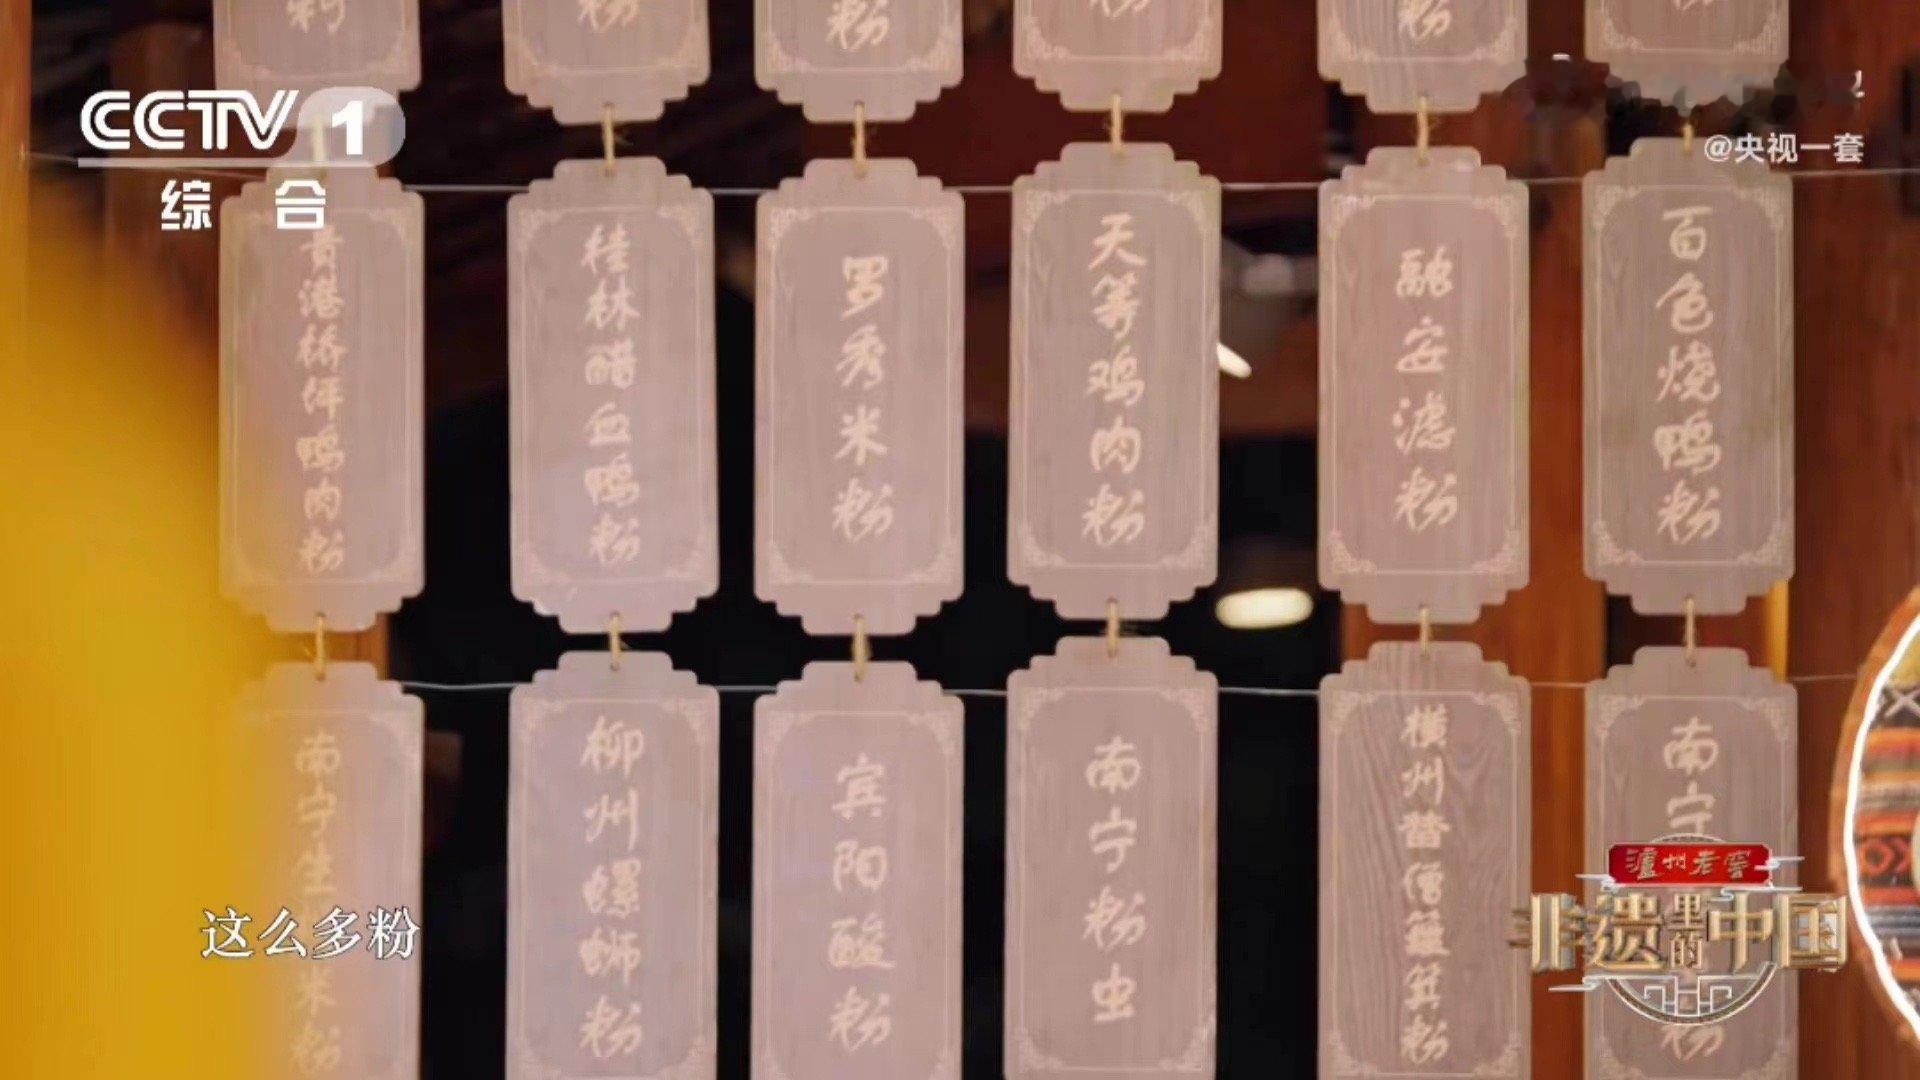 粉
粉
粉
粉
CCTV 1
综合
@央视一套
贵港桥圩鸭肉粉
桂林醋血鸭粉
罗秀米粉
天等鸡肉粉
融安滤粉
百色烧鸭粉
南宁生
米粉
柳州螺蛳粉
宾阳酸粉
南宁粉虫
横州昔僧簸箕粉
南宁
粉
这么多粉
泸州老窖
非遗里的中国